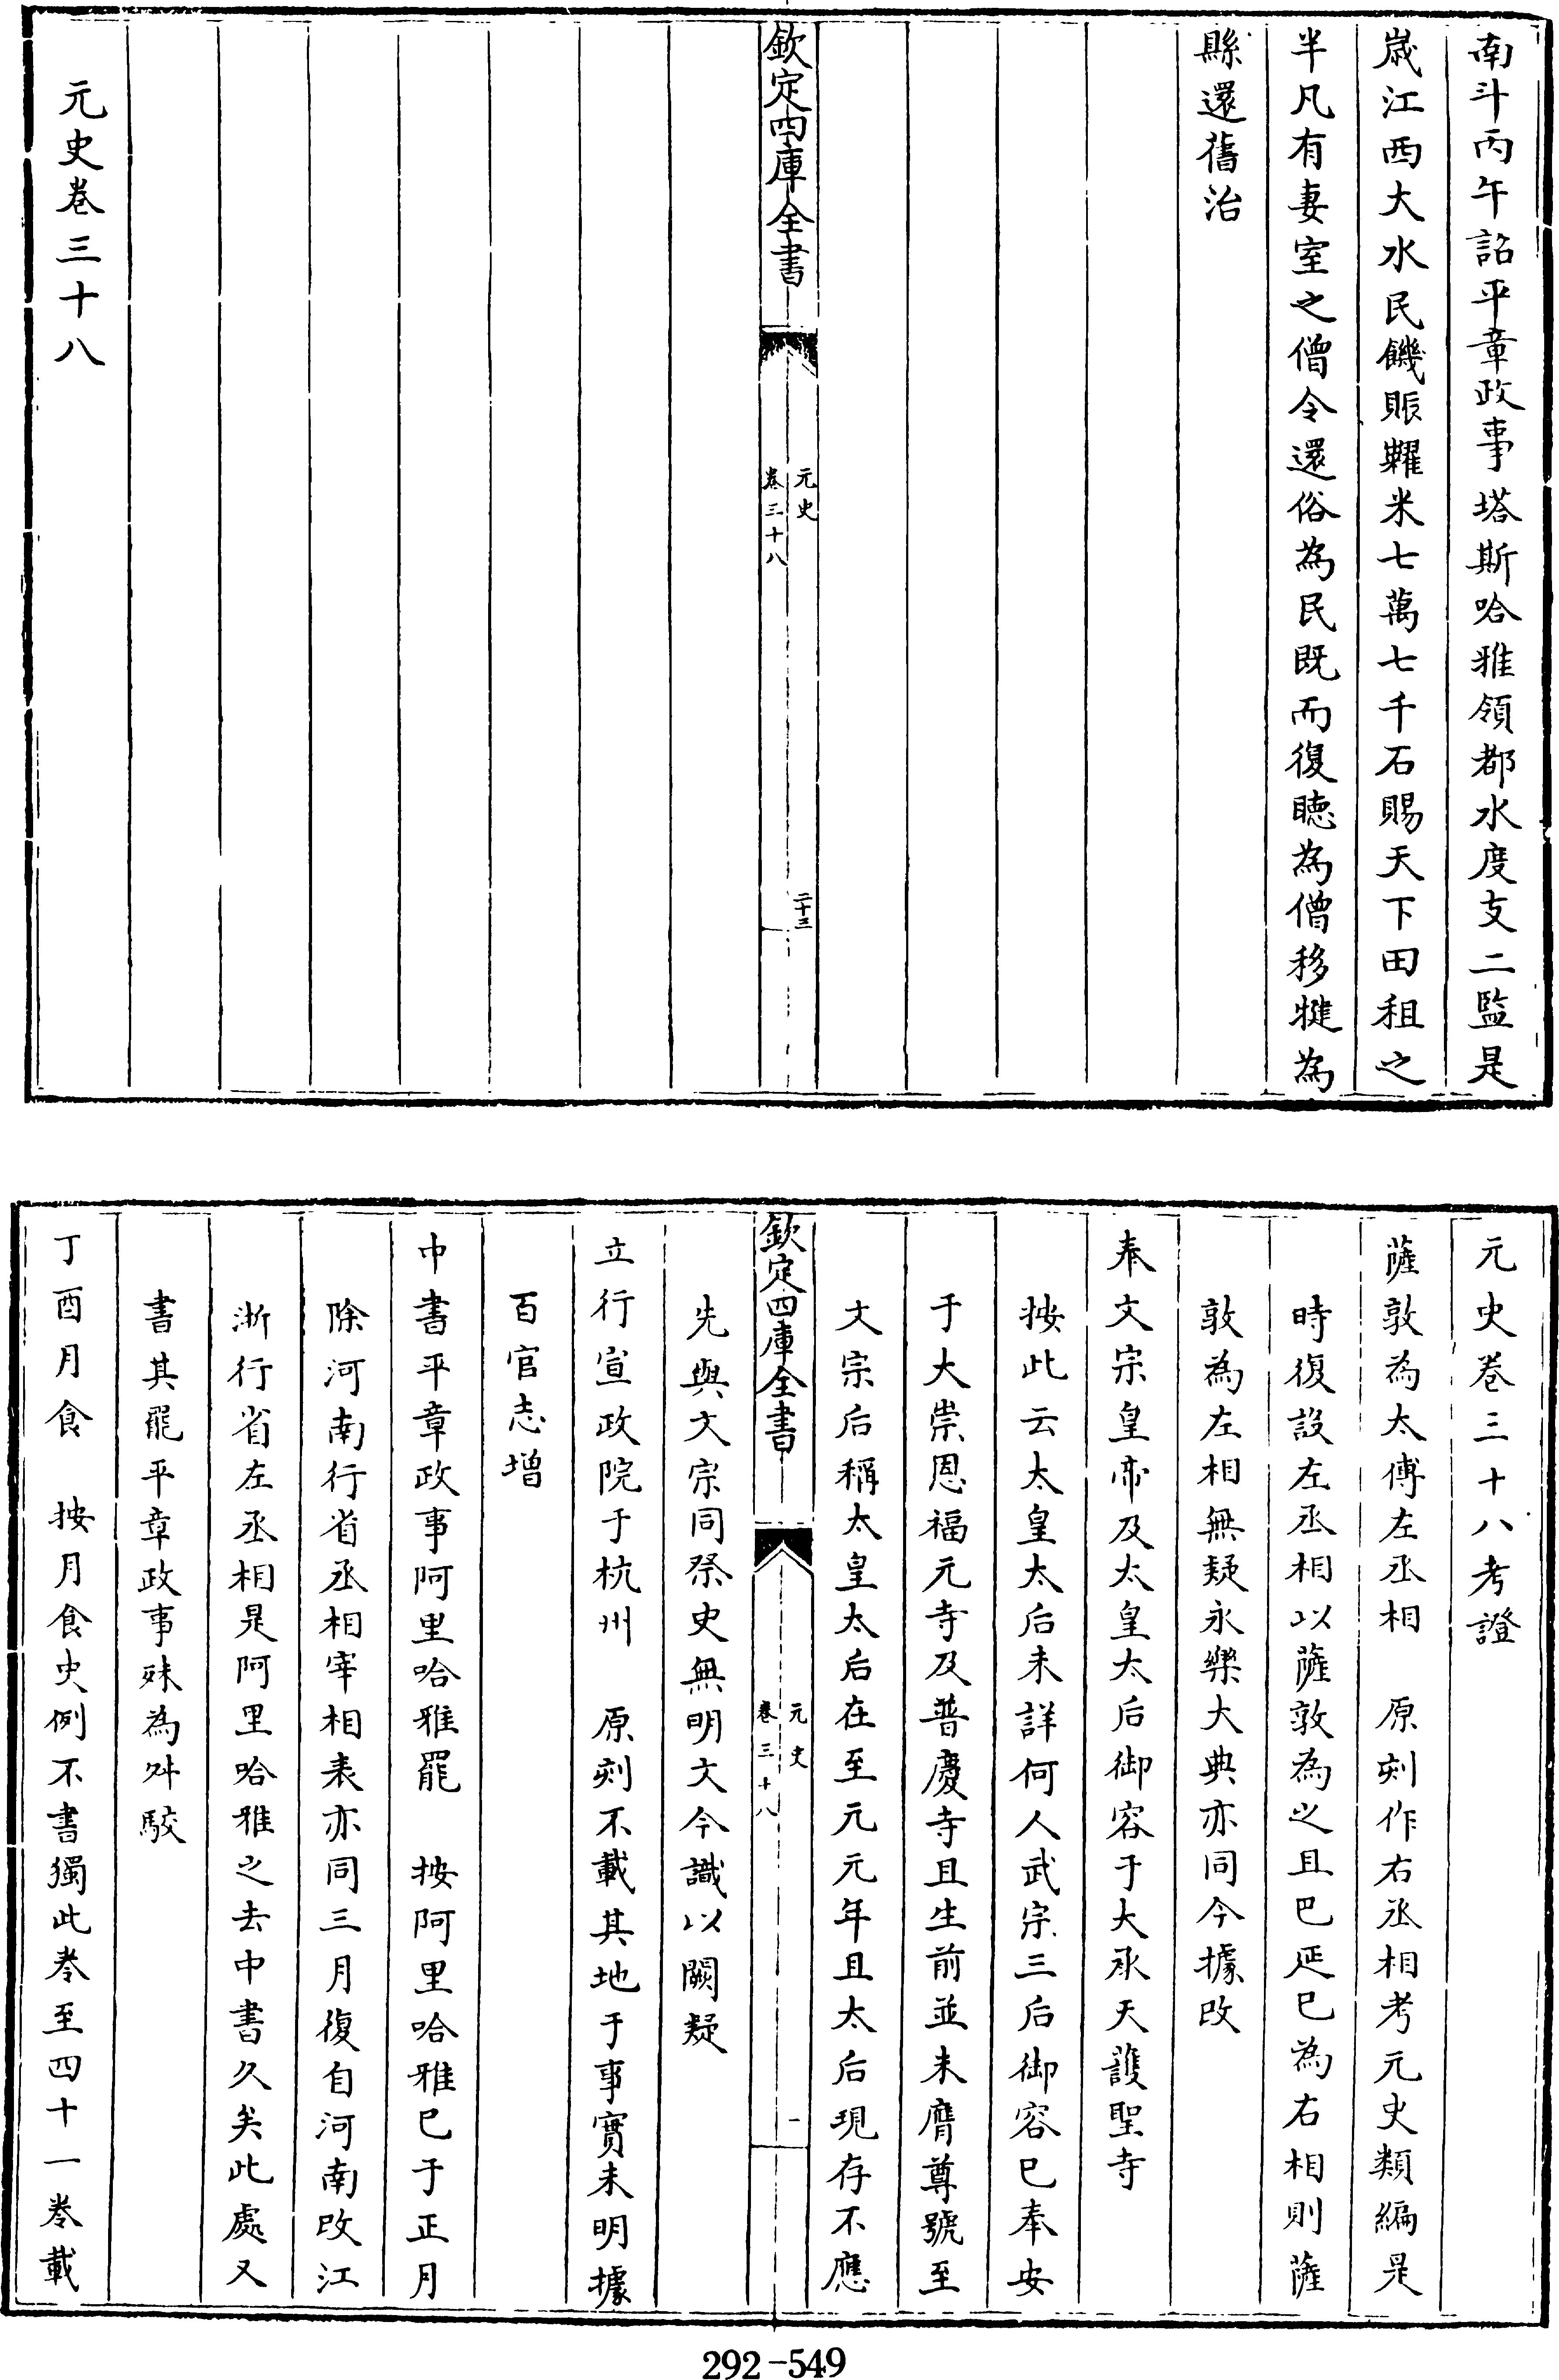 南斗丙午詔平章政事塔斯哈雅領都水度支二監是
歳江西大水民饑賑糶米七萬七千石賜天下田租之
半凡有妻室之僧令還俗為民既而復聴為僧移犍為
縣還舊治
欽定四庫全書
元史
卷三十八
二十三
元史卷三十八
元史卷三十八考證
薩敦為太傅左丞相 原刻作右丞相考元史類編是
時復設左丞相以薩敦為之且巴延已為右相則薩
敦為左相無疑永樂大典亦同今據改
奉文宗皇帝及太皇太后御容于大承天護聖寺
按此云太皇太后未詳何人武宗三后御容已奉安
于大崇恩福元寺及普慶寺且生前並未膺尊號至
文宗后稱太皇太后在至元元年且太后現存不應
欽定四庫全書
元史
卷三十八
一
先與文宗同祭史無明文今識以闕疑
立行宣政院于杭州 原刻不載其地于事實未明據
百官志增
中書平章政事阿里哈雅罷 按阿里哈雅已于正月
除河南行省丞相宰相表亦同三月復自河南改江
浙行省左丞相是阿里哈雅之去中書久矣此處又
書其罷平章政事殊為舛駁
丁酉月食 按月食史例不書獨此卷至四十一卷載
292-549